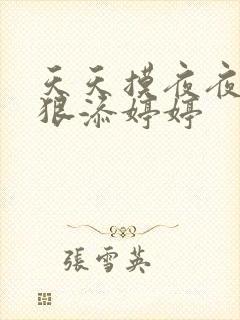 天天摸夜夜
狠添婷婷
張雪英